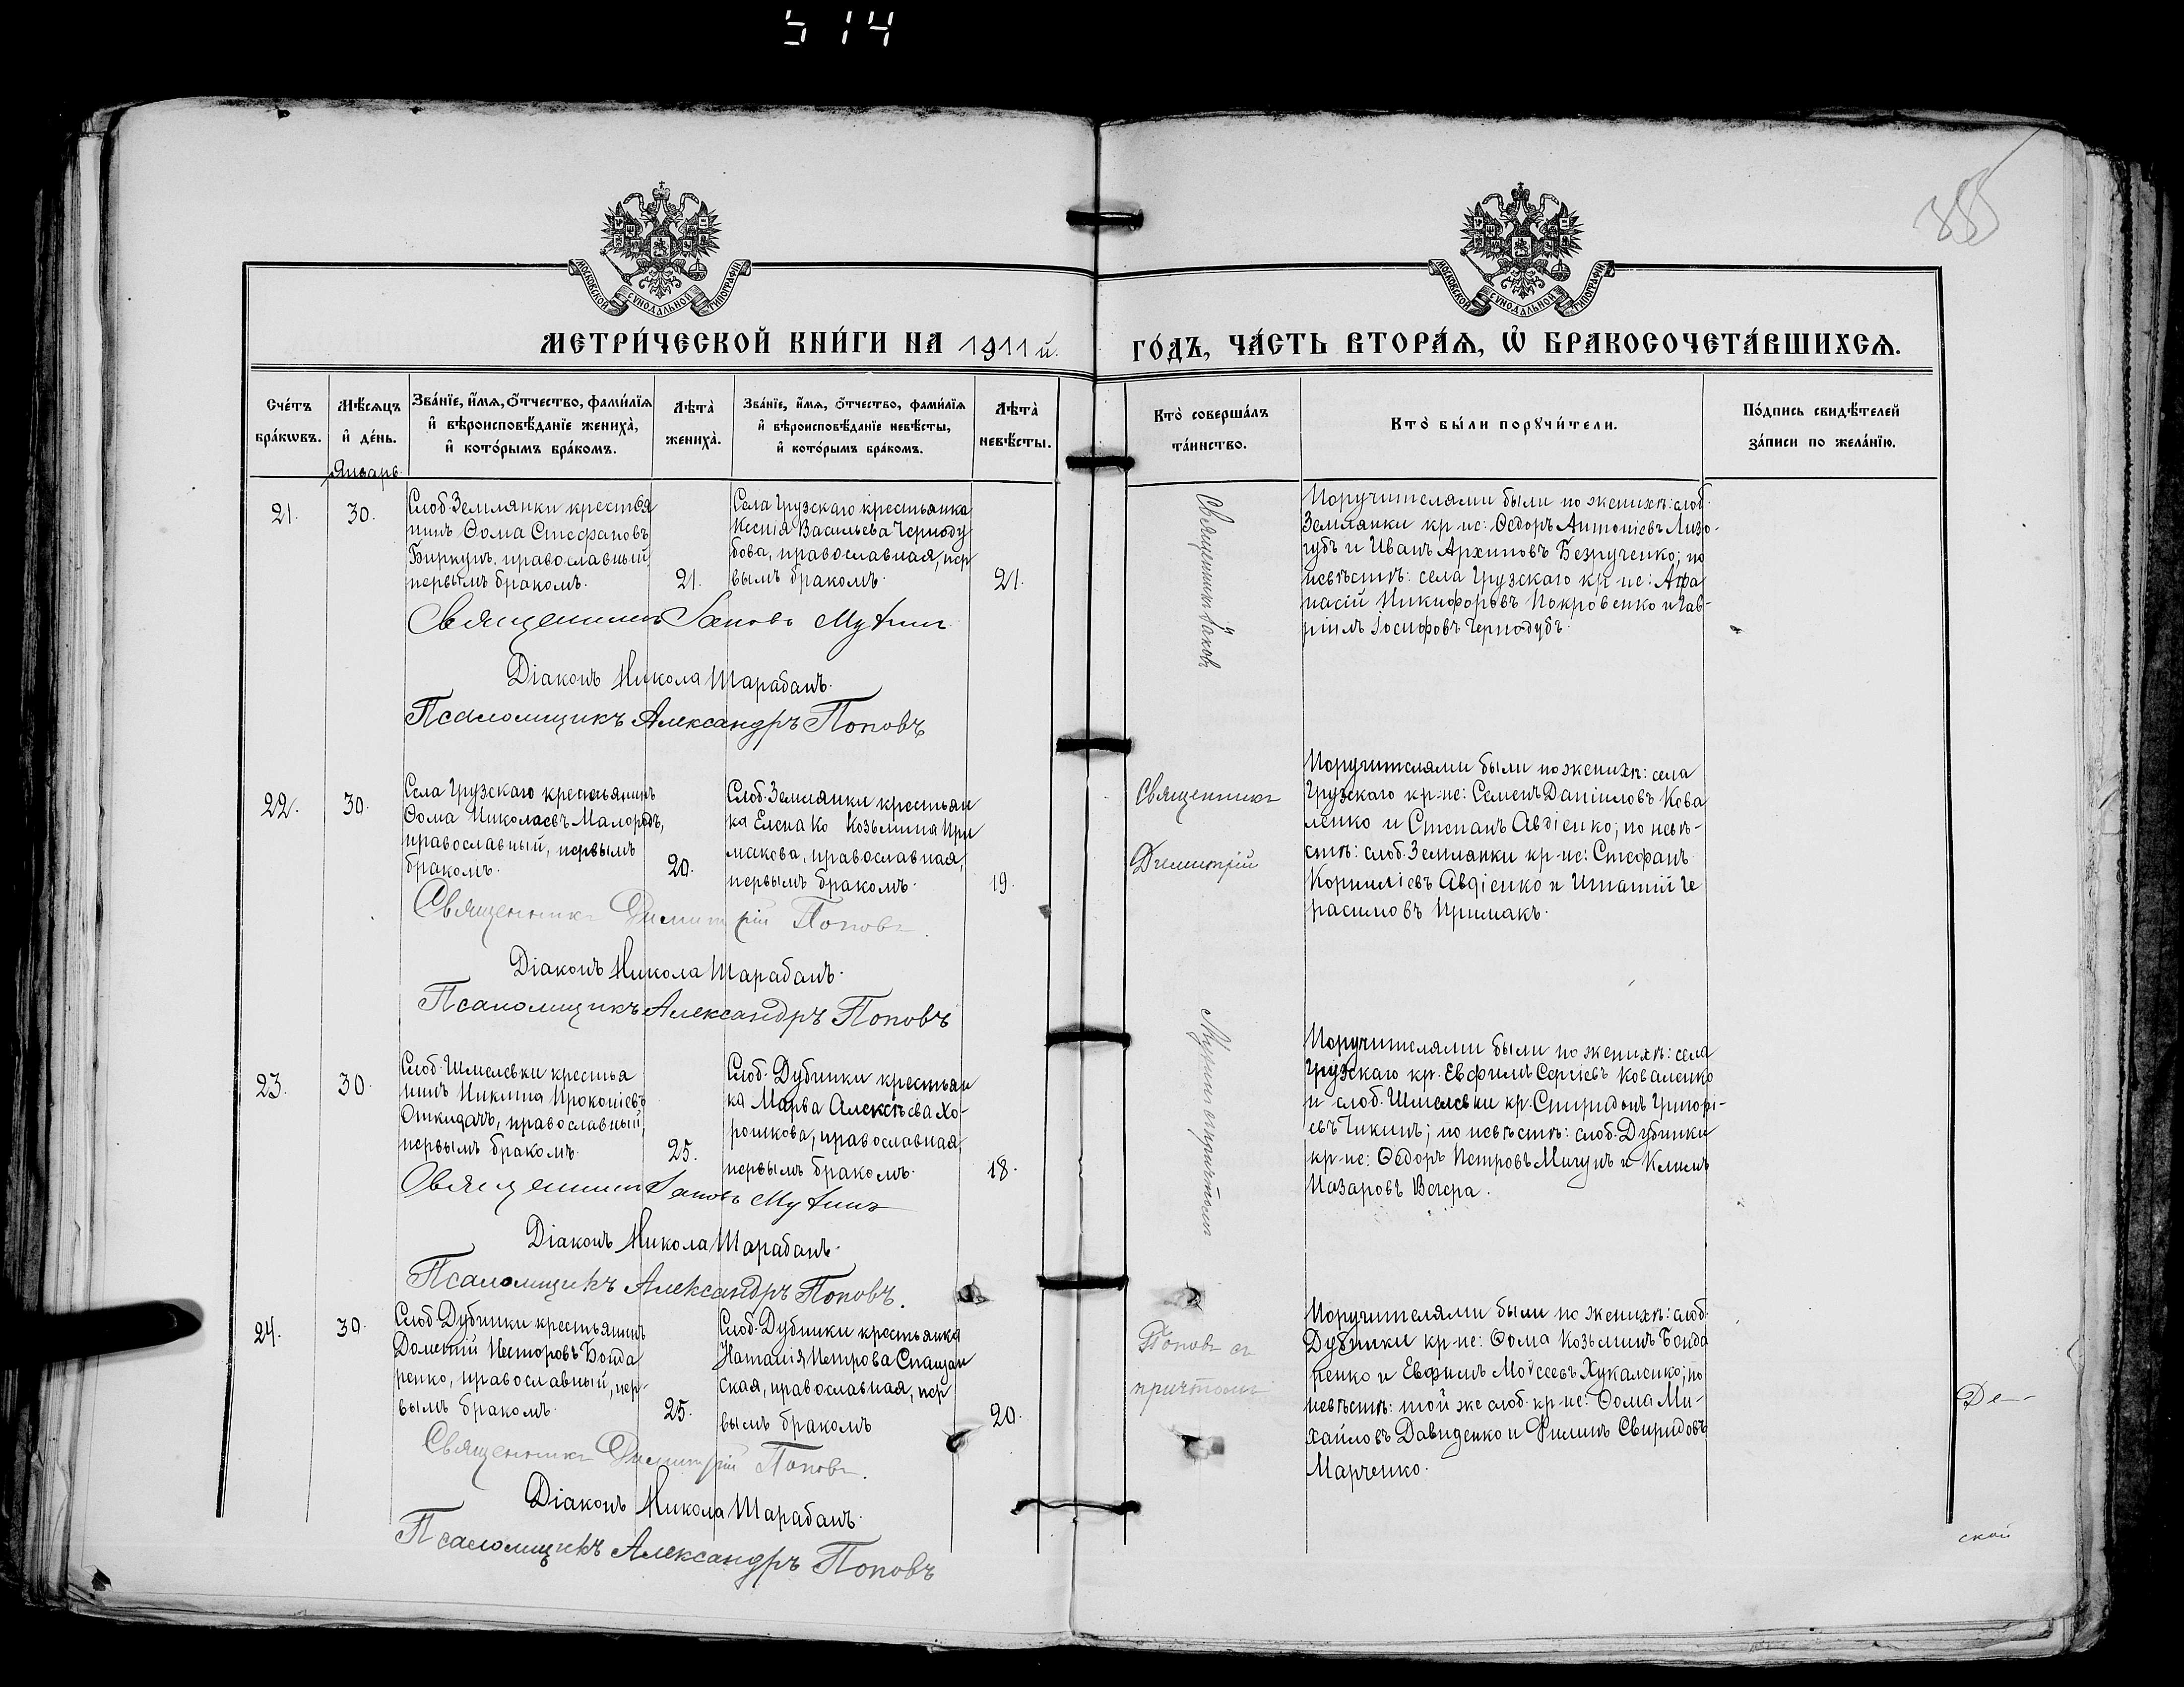 514
385
МОСКОВСКОЙ СѴНОДАЛЬНОЙ ТИПОГРАФІИ
МОСКОВСКОЙ СѴНОДАЛЬНОЙ ТИПОГРАФІИ
МЕТРИ́ЧЕСКОЙ КНИ́ГИ НА 1911 й. ГО́ДЪ, ЧА́СТЬ ВТОРА́Ѧ, Ѽ БРАКОСОЧЕТА́ВШИХСѦ.
Сче́тъ
бра́кѡвъ.
Мѣ́сяцъ
и де́нь.
Январь.
Зва́нїе, и́мя, о́тчество, фами́лїя
и вѣроисповѣ́данїе жениха̀,
и кото́рымъ бра́комъ.
Лѣта̀
жениха̀.
Зва́нїе, и́мя, о́тчество, фами́лїя
и вѣроисповѣ́данїе невѣ́сты,
и кото́рымъ бра́комъ.
Лѣта̀
невѣ́сты.
Кто̀ соверша́лъ
та́инство.
Кто̀ бы́ли порꙋчи́тели.
По́дпись свидѣ́телей
за́писи по жела́нїю.
21.
30.
Слоб. Землянки крестья
нинъ Ѳома Стефановъ
Биркунъ, православный,
первымъ бракомъ.
21.
Села Грузскаго крестьянка
Ксенія Васильева Чернодубо
бова, православная, пер
вымъ бракомъ.
21.
Священникъ Іаковъ
Поручителями были по женихѣ: слоб.
Землянки кр-не: Ѳедоръ Антоніевъ Лизо-
губъ и Иванъ Архиповъ Безрученко; по
невѣстѣ: села Грузскаго кр-не: Афа
насій Никифоровъ Покровенко и Гав-
ріилъ Іосифовъ Чернодубъ.
Священникъ Іаковъ
Діаконъ Никола Шарабанъ.
Псаломщикъ Александръ Поповъ
22.
30.
Села Грузскаго крестьянинъ
Ѳома Николаевъ Малородъ,
православный, первымъ
бракомъ.
20.
Слоб. Землянки крестьян
ка Елена Ко Козьмина При
макова, православная,
первымъ бракомъ.
19.
Священникъ
Димитрій
Поручителями были по женихѣ: села
Грузскаго кр-не: Семенъ Даніиловъ Кова
ленко и Степанъ Авдіенко; по невѣ-
стѣ: слоб. Землянки кр-не: Стефанъ
Корниліевъ Авдіенко и Игнатій Ге
расимовъ Примакъ.
Священникъ Димитрій Поповъ.
Діаконъ Никола Шарабанъ.
Псаломщикъ Александръ Поповъ
23.
30.
Слоб. Шмелевки крестья
нинъ Никита Прокопіевъ
Откидачъ, православный,
первымъ бракомъ.
25.
Слоб. Дубинки крестьян
ка Марѳа Алексѣева Хо-
рошкова, православная,
первымъ бракомъ.
18.
съ причтомъ
Поручителями были по женихѣ: села
Грузскаго кр. Евфимъ Сергіевъ Коваленко
и слоб. Шмелевки кр. Спиридонъ Григорі-
евъ Чикинъ; по невѣстѣ: слоб. Дубинки
кр-не: Ѳедоръ Петровъ Мигунъ и Климъ
Назаровъ Вечера.
Священникъ Іаковъ
Діаконъ Никола Шарабанъ.
Псаломщикъ Александръ Поповъ.
24.
30.
Слоб. Дубинки крестьянинъ
Дометій Несторовъ Бонда
ренко, православный, пер-
вымъ бракомъ.
25.
Слоб. Дубинки крестьянка
Наталія Петрова Спащан
ская, православная, пер
вымъ бракомъ
20.
Поповъ съ
причтомъ
Поручителями были по женихѣ: слоб.
Дубинки кр-не: Ѳома Козьминъ Бонда
ренко и Евфимъ Моѵсеевъ Хукаленко; по
невѣстѣ: той же слоб. кр-не: Ѳома Ми-
хайловъ Давиденко и Филипъ Свиридовъ
Марченко.
Священникъ Димитрій Поповъ.
Діаконъ Никола Шарабанъ.
Псаломщикъ Александръ Поповъ
Де-
ской